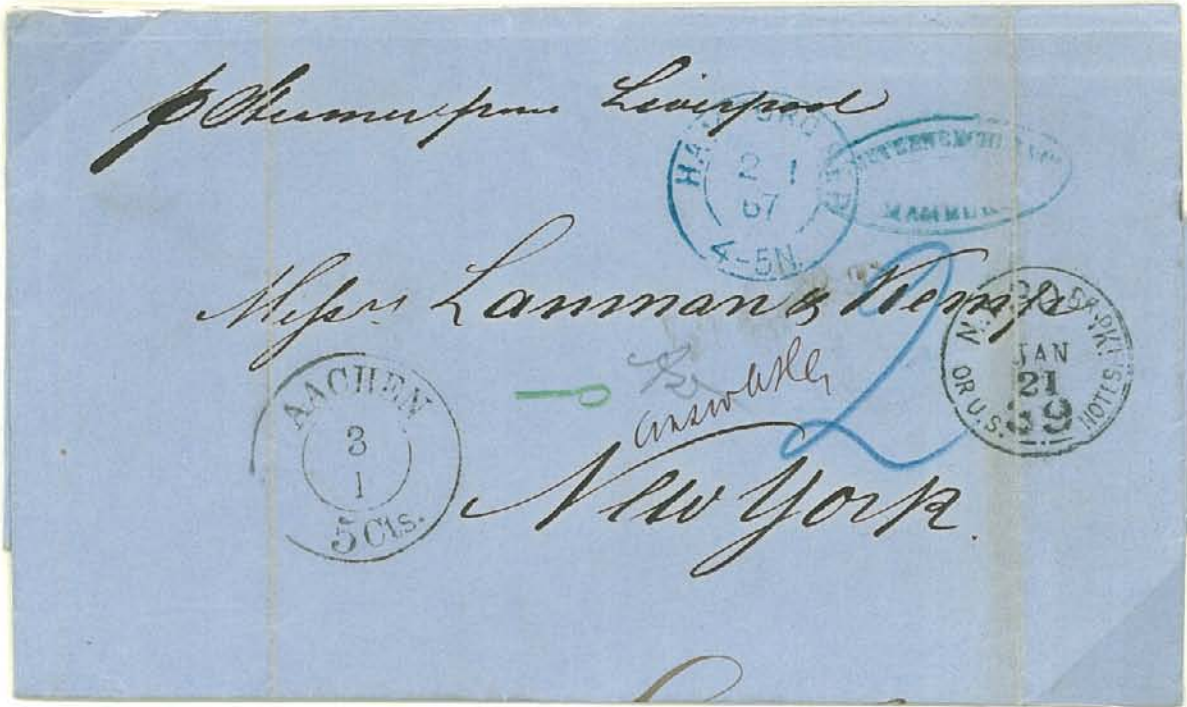 p Steamer from Liverpool
HAMBURG
2 1
67
4-5N.
HAMBURG
Messrs Lanman & Kemp
N.Y. BR. PKT.
30
JAN
21
39
OR U.S. NOTES
AACHEN
3
1
5 Cts.
2
New York.